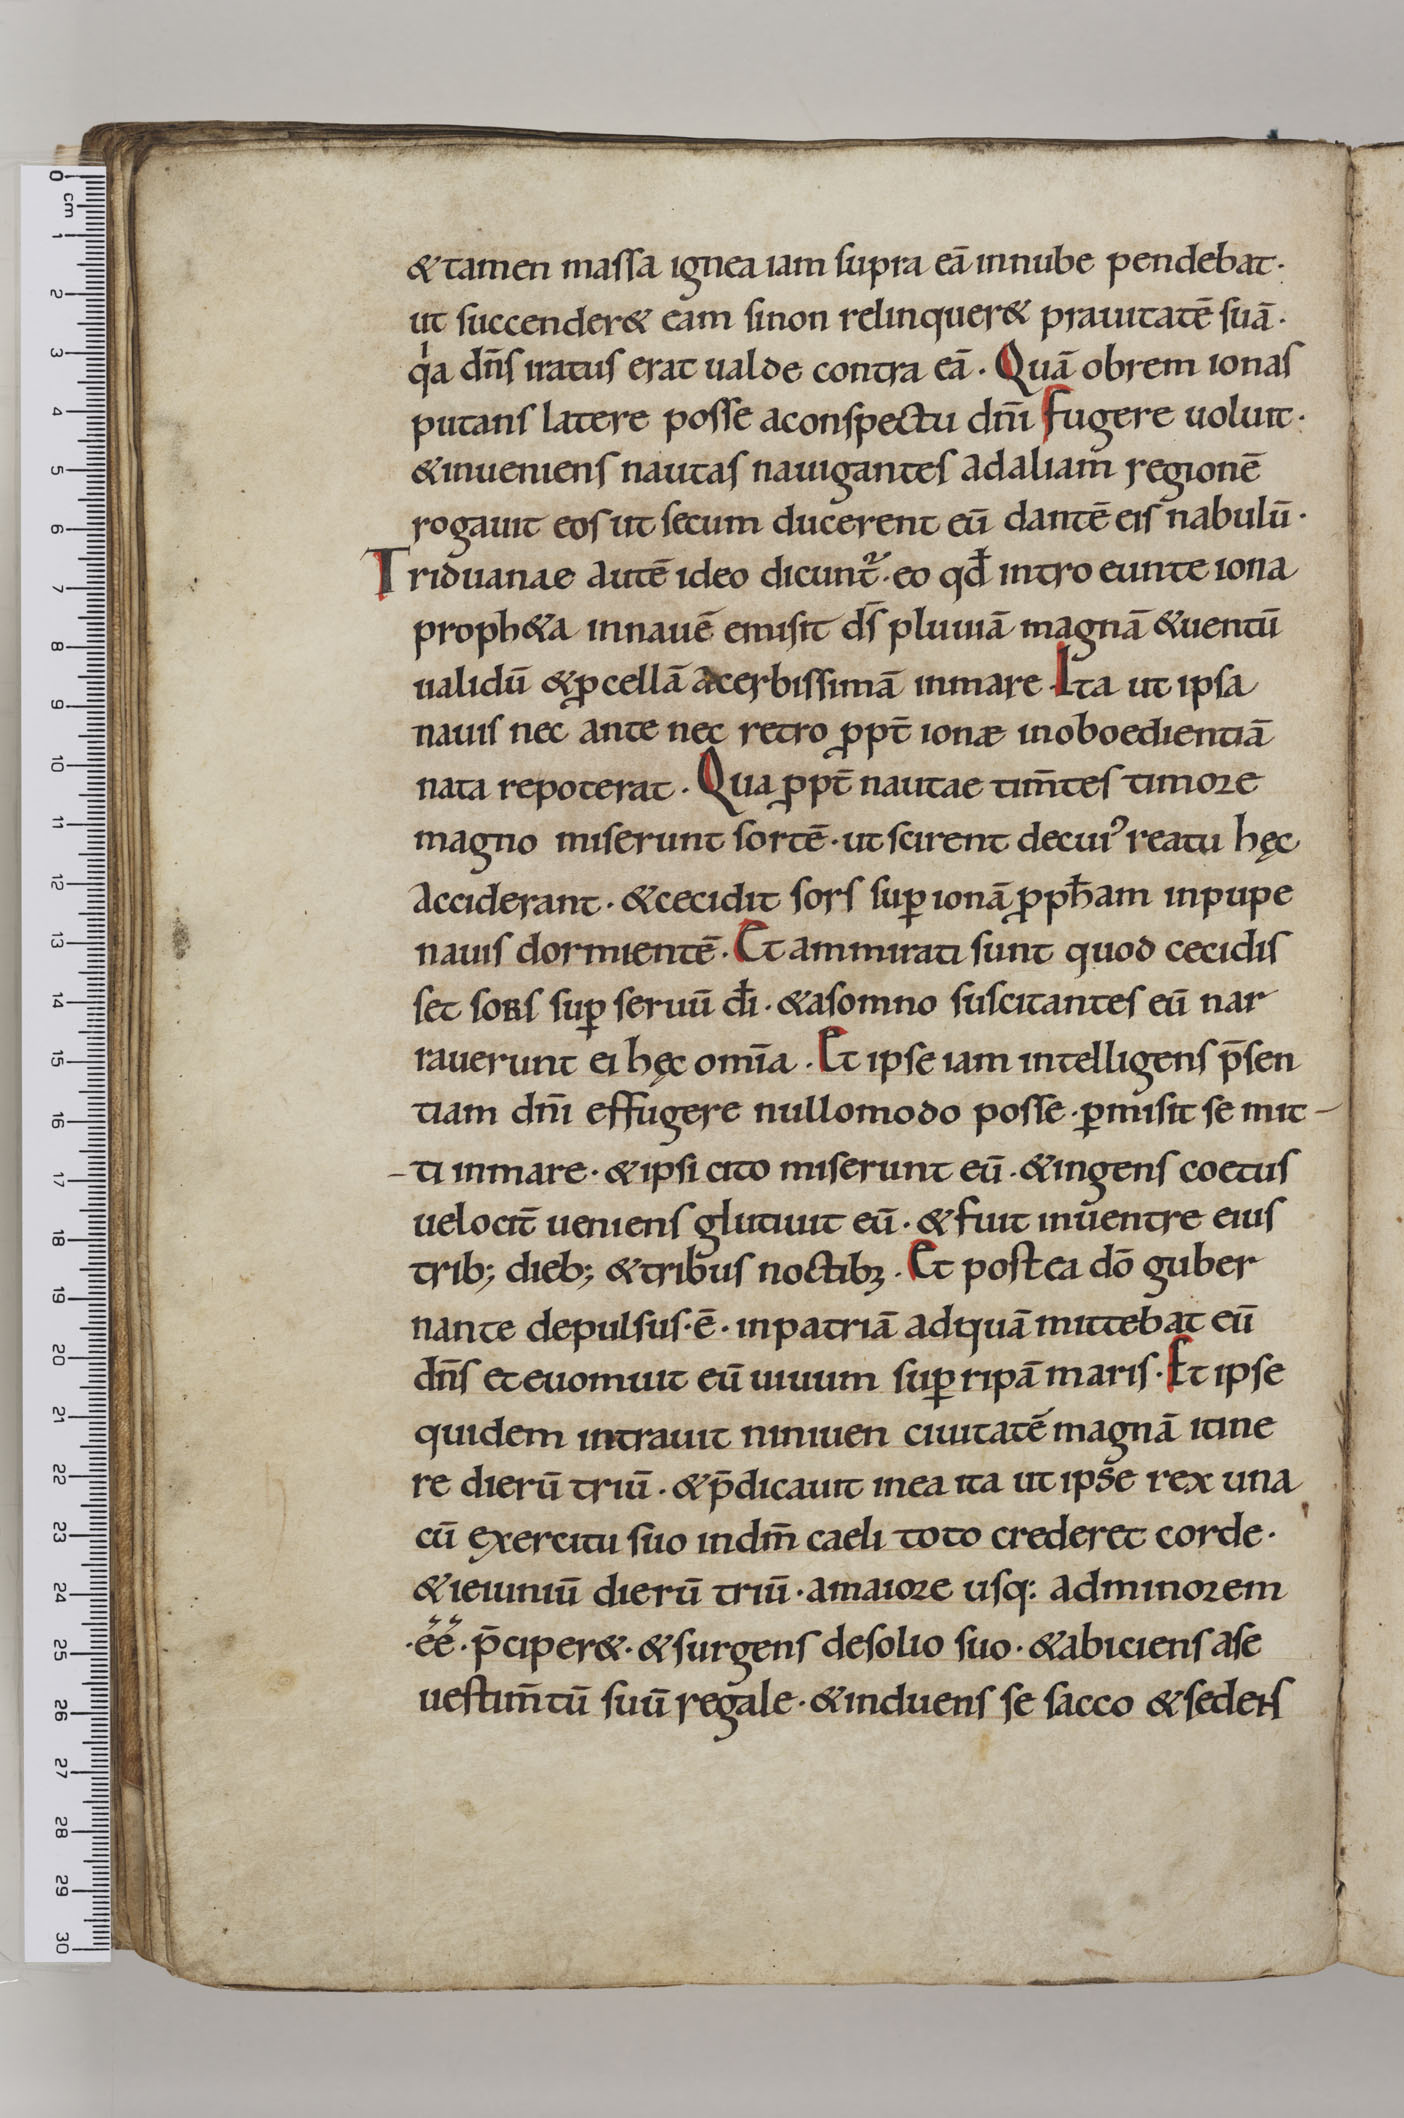 &tamen massa ignea iam supra eā innube pendebat·
ut succender& eam sinon relinquer& prauitatē suā·
qͥa dn̄s iratus erat ualde contra eā· Quā obrem ionas
putans latere posse aconspectu dn̄i fugere uoluit·
&inueniens nautas nauigantes adaliam regionē
rogauit eos ut secum ducerent eū dantē eis nabulū·
Triduanae autē ideo dicunt᷑· eo qđ intro eunte iona
proph&a innauē emisit ds̄ pluuiā magnā &uentū
ualidū &ꝓcellā acerbissimā inmare· Ita ut ipsa
nauis nec ante nec retro ꝓpt̄ ionæ inoboedientiā
nata repoterat· Qua ꝓpt̄ nautae tim̄tes timore
magno miserunt sortē· ut scirent decuiꝰ reatu hęc
acciderant· &cecidit sors suꝑ ionā ꝓpħam inpupe
nauis dormientē· Et ammirati sunt quod cecidis
set sors suꝑ seruū đi· &asomno suscitantes eū nar
rauerunt ei hęc om̄ia· Et ipse iam intelligens p̄sen
tiam dn̄i effugere nullomodo posse· ꝑmisit se mit-
-ti inmare· &ipsi cito miserunt eū· &ingens coetus
uelocit̄ ueniens glutiuit eū· &fuit inuentre eius
trib; dieb; &tribus noctibꝫ· Et postea dō guber
nante depulsus·ē· inpatriā adquā mittebat eū
dn̄s et euomuit eū uiuum suꝑ ripā maris· Et ipse
quidem intrauit niniuen ciuitatē magnā itine
re dierū triū· &p̄dicauit inea ita ut ipse rex una
cū exercitu suo indm̄ caeli toto crederet corde·
&ieiuniū dierū triū· amaiore usq: adminorem
·ēē· p̄ciper&· &surgens desolio suo· &abiciens ase
uestim̄tū suū regale· &induens se sacco &sedens
0 cm
1
2
3
4
5
6
7
8
9
10
11
12
13
14
15
16
17
18
19
20
21
22
23
24
25
26
27
28
29
30